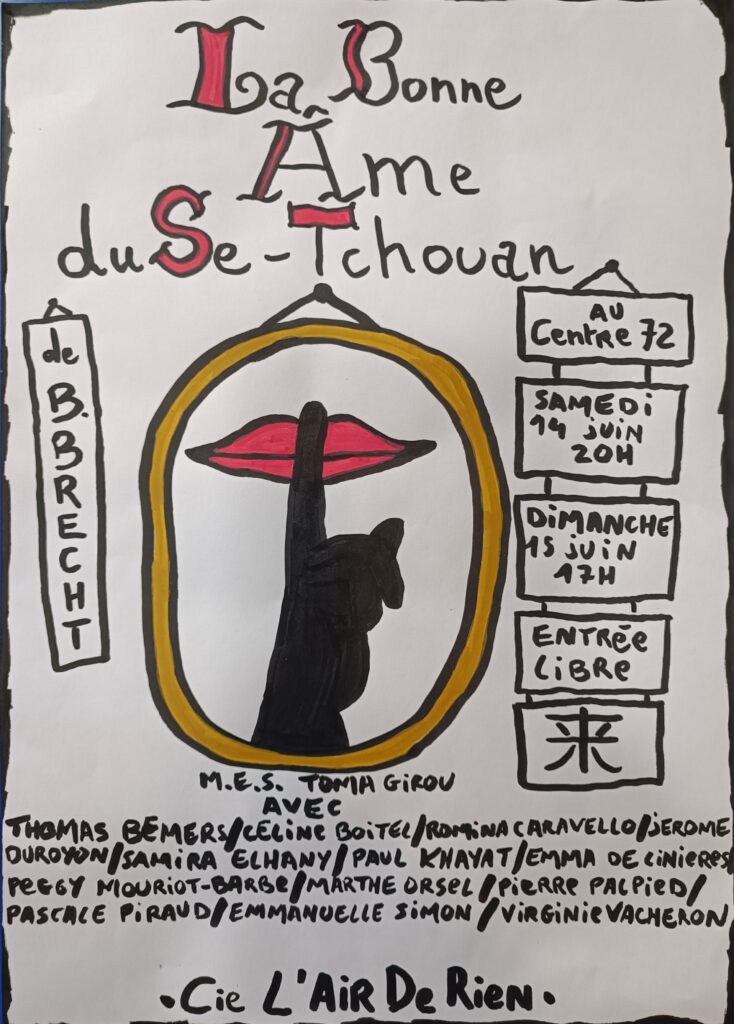 La Bonne
Âme
du Se-Tchouan
de B. BRECHT
AU
Centre 72
SAMEDI
14 juin
20H
DIMANCHE
15 juin
17H
ENTRÉE
LIBRE
来
M.E.S. TOMA GIROU
AVEC
THOMAS BEMERS/CÉLINE BOITEL/ROMINA CARAVELLO/JEROME
DUROYON/SAMIRA ELHANY/PAUL KHAYAT/EMMA DE LINIERES/
PEGGY MOURIOT-BARBE/MARTHE ORSEL/PIERRE PALPIED/
PASCALE PIRAUD/EMMANUELLE SIMON/VIRGINIE VACHERON
•Cie L'AIR De Rien•